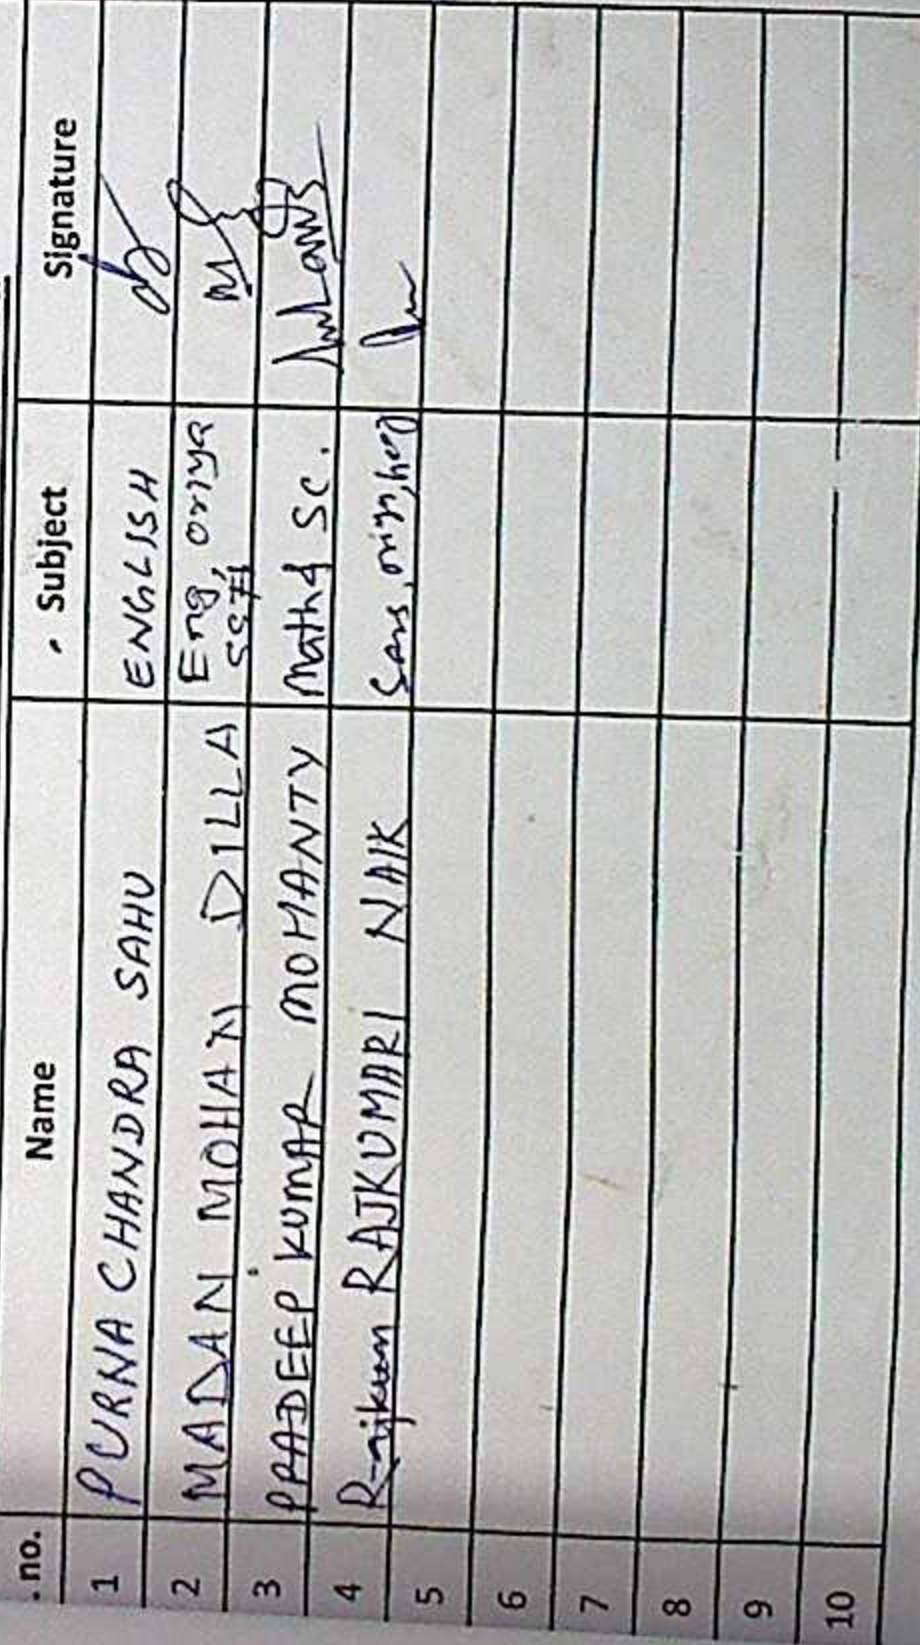 . no. Name Subject Signature
1 PURNA CHANDRA SAHU ENGLISH
2 MADAN MOHAN DILLA Eng, oriya
SST
3 PRADEEP KUMAR MOHANTY Math & SC.
4 RAJKUMARI NAIK Sans,
5
6
7
8
9
10